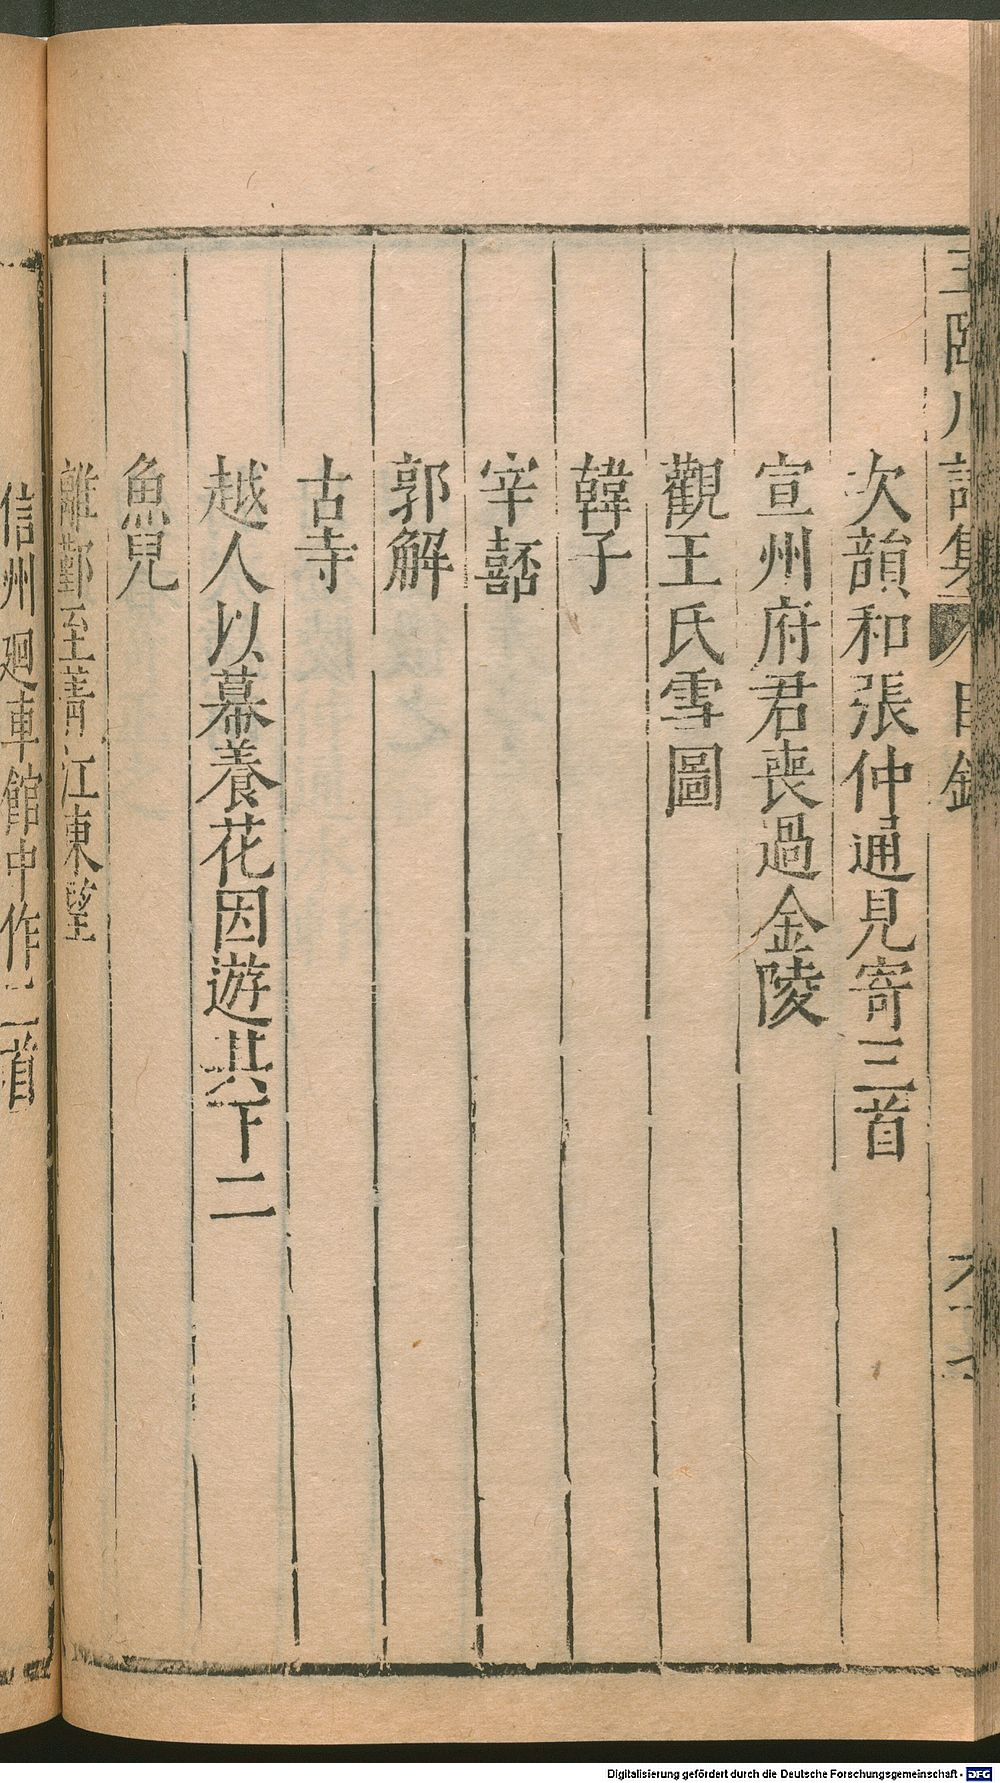 王臨川詩集 目錄
次韻和張仲通見寄三首
宣州府君喪過金陵
觀王氏雪圖
韓子
宰嚭
郭解
古寺
越人以幕養花因遊其下二
魚兒
離鄞至菁江東望
信州廻車館中作二首
Digitalisierung gefördert durch die Deutsche Forschungsgemeinschaft - DFG